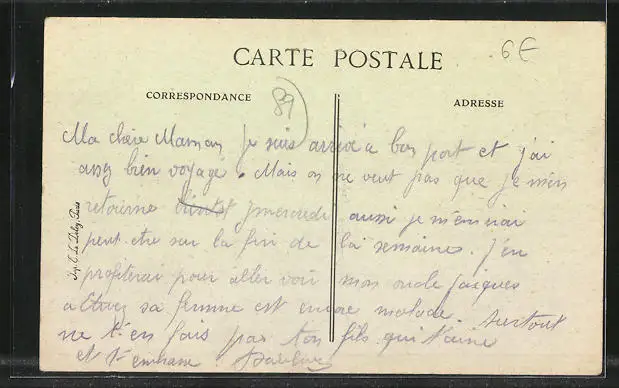 CARTE POSTALE
6E
CORRESPONDANCE
89
ADRESSE
Ma chère Maman je suis arrivé à bon port et j'ai
assez bien voyagé. Mais on ne veut pas que je m'en
retourne mercredi aussi je m'en irai
peut-etre sur la fin de la semaine. J'en
profiterai pour aller voir mon oncle Jacques
sa femme est encore malade. Surtout
ne t'en fais pas ton fils qui t'aime
et t'embrasse.